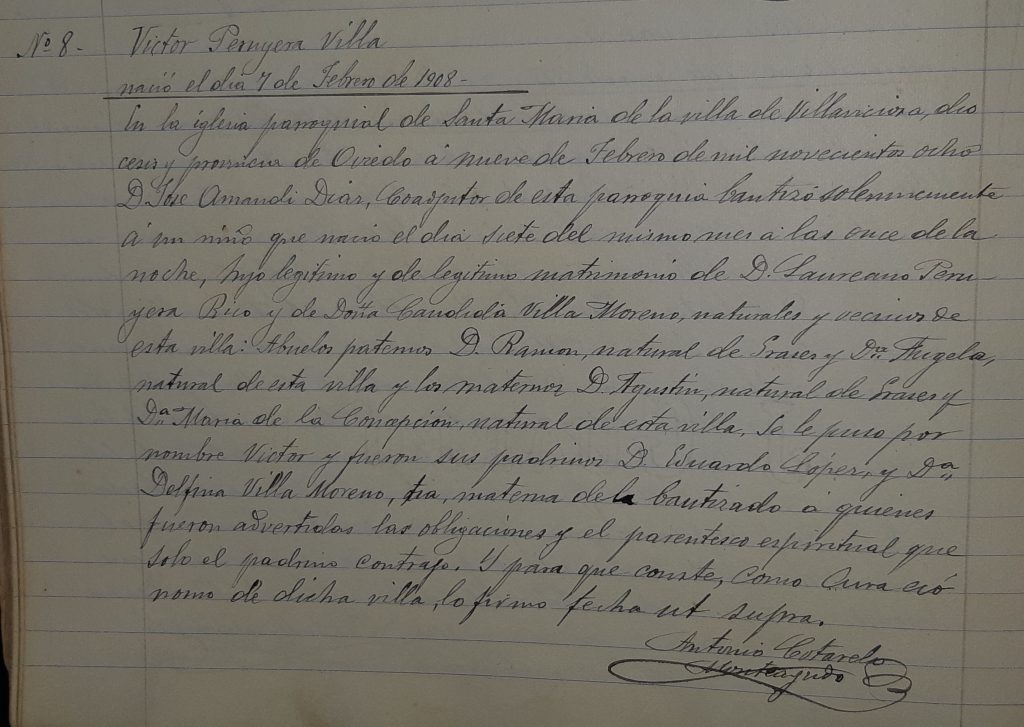 Nº 8- Victor Peruyera Villa
nació el dia 7 de Febrero de 1908-
En la iglesia parroquial de Santa Maria de la villa de Villaviciosa, dio
cesis y provincia de Oviedo á nueve de Febrero de mil novecientos ocho
D. Jose Amandi Diaz, Coadjutor de esta parroquia bautizó solemnemente
á un niño que nacio el dia siete del mismo mes a las once de la
noche, hijo legitimo y de legitimo matrimonio de D. Laureano Peru
yera Rico y de Doña Candida Villa Moreno, naturales y vecinos de
esta villa: Abuelos paternos D. Ramon, natural de Grases y Dña. Angela,
natural de esta villa y los maternos D. Agustin, natural de Grases y
Dña Maria de la Concepción, natural de esta villa. Se le puso por
nombre Victor y fueron sus padrinos D. Eduardo López, y Dña.
Delfina Villa Moreno, tia, materna de la bautizado á quienes
fueron advertidas las obligaciones y el parentesco espiritual que
solo el padrino contrajo. Y para que conste, como Cura ecó
nomo de dicha villa, lo firmo fecha ut supra.
Antonio Cotarelo
Monteagudo